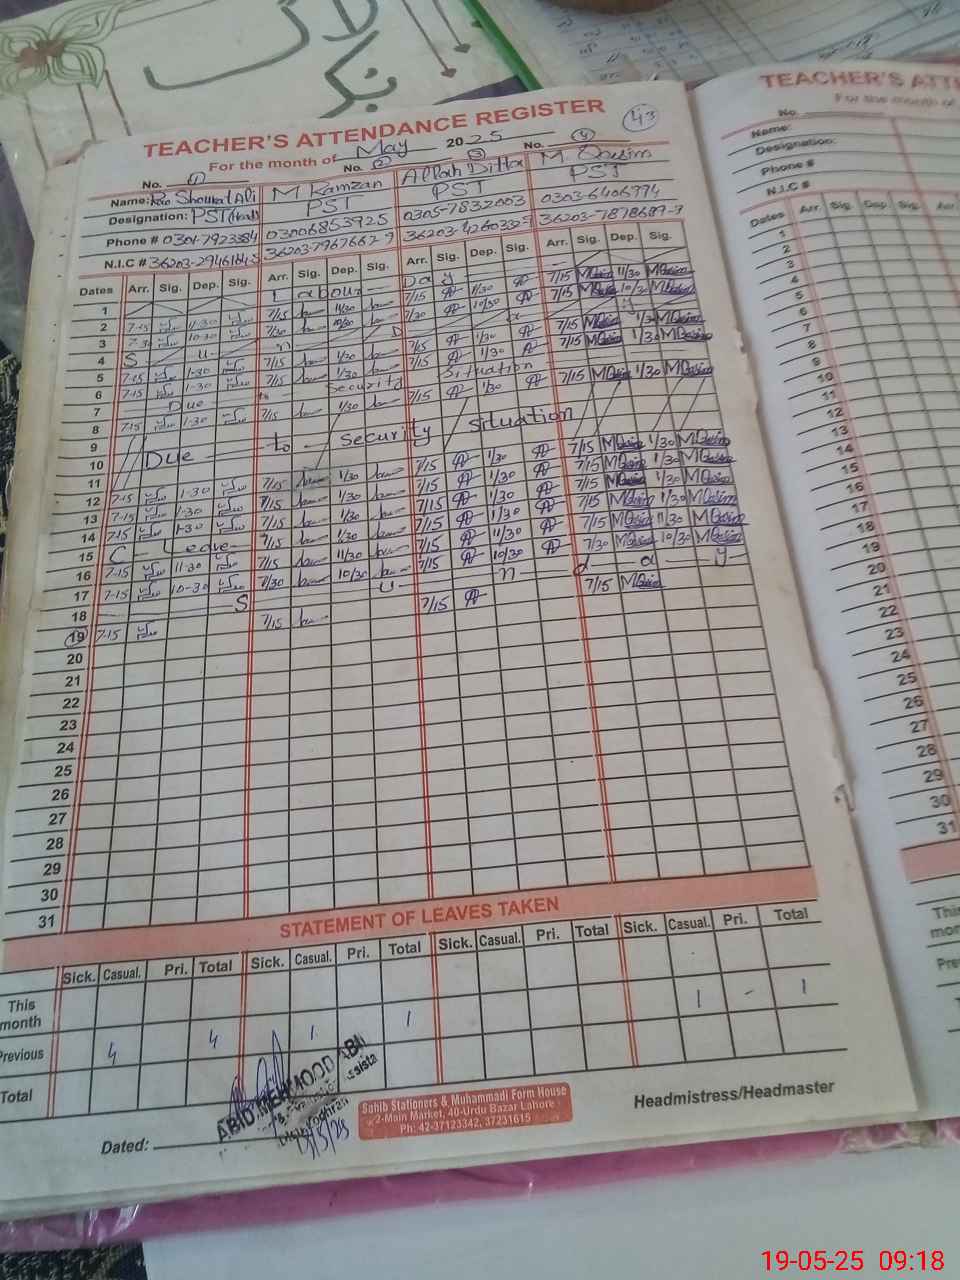 لاگ
بک
TEACHER'S ATTENDANCE REGISTER
43
For the month of May 2025
No. 1 No. 2 3 No. 4
Name: Rao Shoukat Ali M Ramzan Allah Ditta M Qasim
Designation: PST PST PST PST
Phone # 0301-7923384 03006853925 0305-7832003 0303-6406774
N.I.C # 36203-2946184-5 36203-7967667-9 36203-4260332-5 36203-7878689-7
Dates Arr. Sig. Dep. Sig. Arr. Sig. Dep. Sig. Arr. Sig. Dep. Sig. Arr. Sig. Dep. Sig.
1 Labour Day
2 7-15 11-30 7/15 11/30 7/15 11/30 7/15 MQasim 11/30 MQasim
3 7-30 10-30 7/30 10/30 7/30 10/30 7/15 MQasim 10/30 MQasim
4 S u n D a y
5 7-15 1-30 7/15 1/30 7/15 1/30 7/15 MQasim 1/30 MQasim
6 7-15 1-30 7/15 1/30 7/15 1/30 7/15 MQasim 1/30 MQasim
7 Due to Security Situation
8 7-15 1-30 7/15 1/30 7/15 1/30 7/15 MQasim 1/30 MQasim
9
10 Due to Security situation
11
12 7-15 1-30 7/15 1/30 7/15 1/30 7/15 MQasim 1/30 MQasim
13 7-15 1-30 7/15 1/30 7/15 1/30 7/15 MQasim 1/30 MQasim
14 7-15 1-30 7/15 1/30 7/15 1/30 7/15 MQasim 1/30 MQasim
15 C - Leave 7/15 1/30 7/15 1/30 7/15 MQasim 1/30 MQasim
16 7-15 11-30 7/15 11/30 7/15 11/30 7/15 MQasim 11/30 MQasim
17 7-15 10-30 7/30 10/30 7/15 10/30 7/30 MQasim 10/30 MQasim
18 S u n d a y
19 7-15 7/15 7/15 7/15 MQasim
20
21
22
23
24
25
26
27
28
29
30
31
STATEMENT OF LEAVES TAKEN
Sick. Casual. Pri. Total Sick. Casual. Pri. Total Sick. Casual. Pri. Total Sick. Casual. Pri. Total
This month
Previous 4 4 1 1 1 - 1
Total
ABID MEHMOOD ABI
Dated:
Sahib Stationers & Muhammadi Form House
2-Main Market, 40-Urdu Bazar Lahore
Ph: 42-37123342, 37231615
Headmistress/Headmaster
TEACHER'S ATTE
For the month of
No.
Name:
Designation:
Phone #
N.I.C #
Dates Arr. Sig. Dep. Sig. Arr
1
2
3
4
5
6
7
8
9
10
11
12
13
14
15
16
17
18
19
20
21
22
23
24
25
26
27
28
29
30
31
This
mon
Pre
19-05-25 09:18